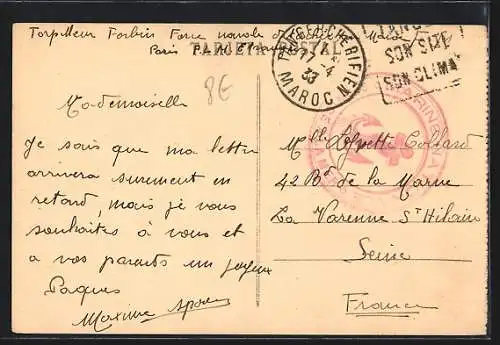 Torpilleur Forbin Force navale
Paris
TARJETA POSTAL
TANGER-CHERIFIEN
17 -4
33
MAROC
SON SITE
SON CLIMAT
8€
Mademoiselle
Je sais que ma lettre
arrivera surement en
retard, mais je vous
souhaites à vous et
a vos parents un joyeux
Paques
Maxime
Mlle Collard
42 Bd de la Marne
La Varenne St Hilaire
Seine
France